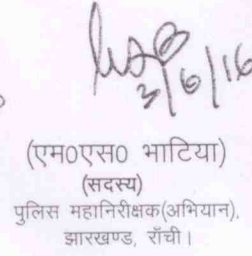 3/6/16
(एम0एस0 भाटिया)
(सदस्य)
पुलिस महानिरीक्षक(अभियान),
झारखण्ड, राँची।